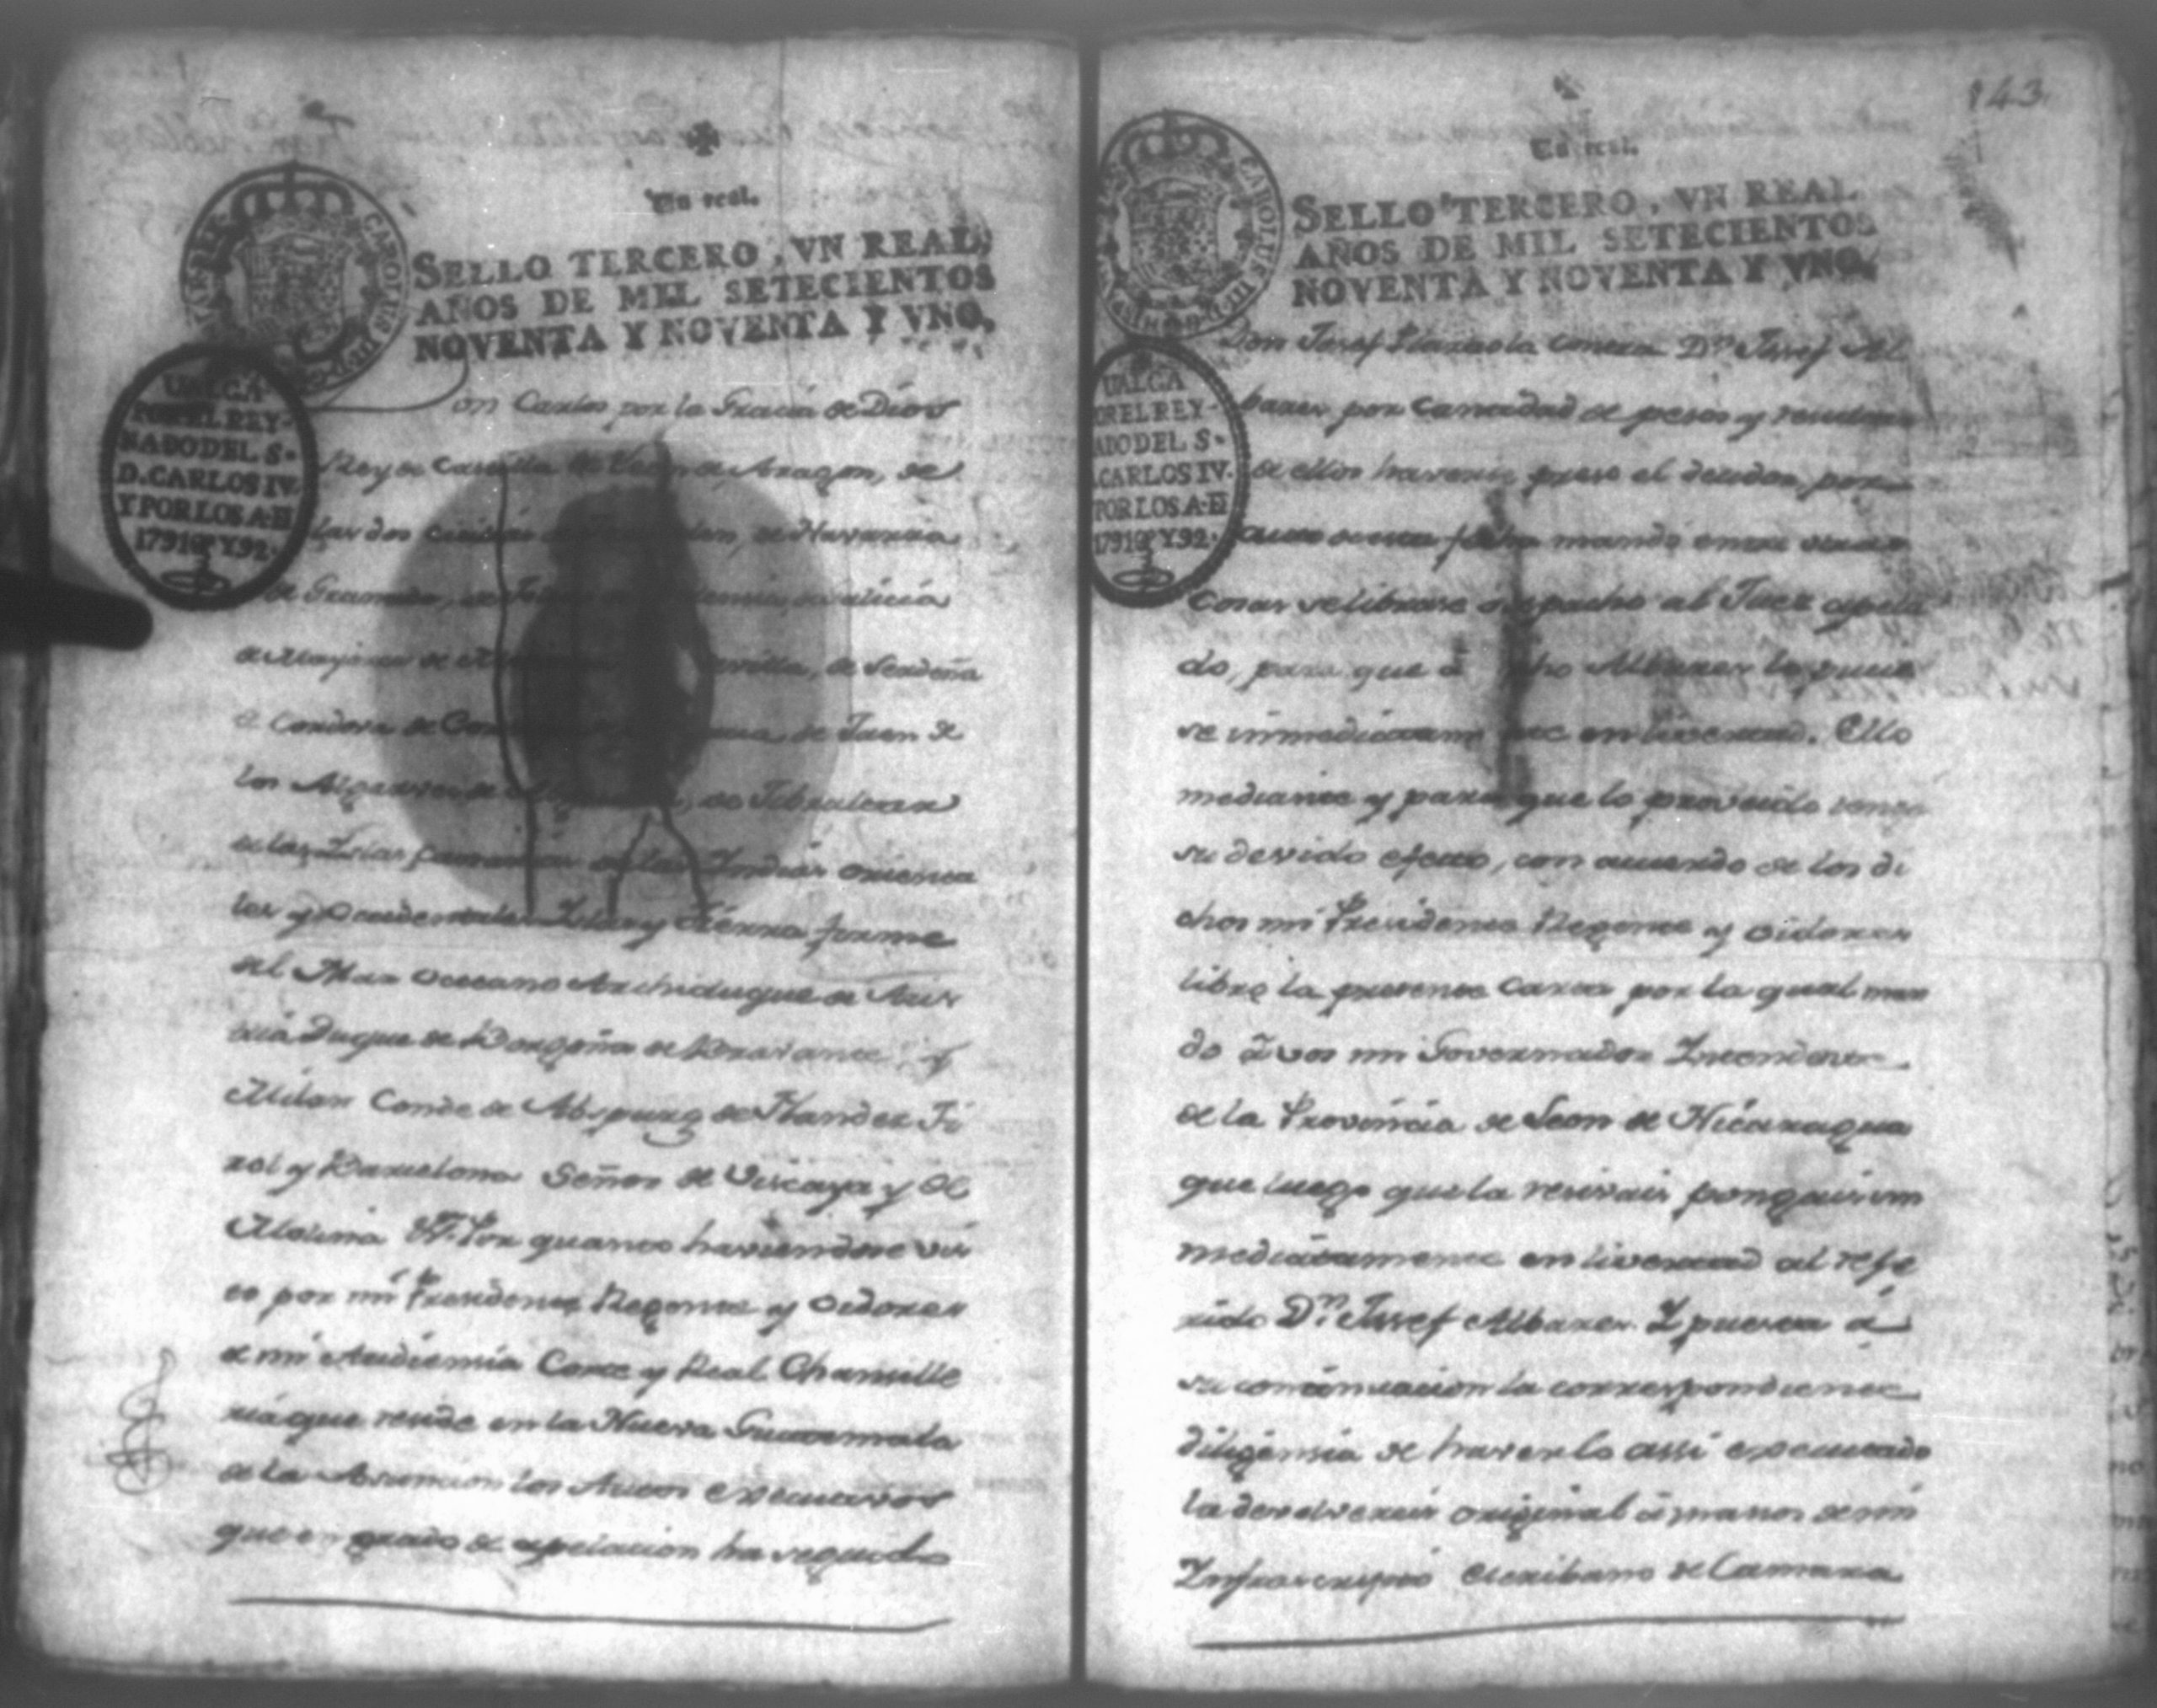 Un real.
SELLO TERCERO, VN REAL,
AÑOS DE MIL SETECIENTOS
NOVENTA Y NOVENTA Y VNO,
VALGA
POR EL REY-
NADO DEL S.
D. CARLOS IV.
Y POR LOS A. D
1791 Y 92.
on Carlos por la Gracia de Dios
Rey de Castilla de Leon de Aragon, de
las dos de Navarra
de Granada, de Galicia
de Mallorca de Sevilla, de Serdeña
de Cordova de de Jaen de
los Algarves de de Gibraltar
de las Islas de las Indias orienta
les y Occidentales Islas y tierra firme
del Mar Occeano Archiduque de Aus
tria Duque de Borgoña de Bravante y
Milan Conde de Abspurg de Flandes Ti
rol y Barcelona Señor de Viscaya y de
Molina &a. Por quanto haviendose vis
to por mi Presidente Regente y Oidores
de mi Audiencia Corte y Real Chancille
ria que reside en la Nueva Guatemala
de la Asuncion los Autos executivos
que en grado de apelacion ha seguido
143.
Un real.
SELLO TERCERO, VN REAL
AÑOS DE MIL SETECIENTOS
NOVENTA Y NOVENTA Y VNO,
CAROLUS
VALGA
POR EL REY-
NADO DEL S.
D. CARLOS IV.
Y POR LOS A. D
1791 Y 92.
Don Josef contra Dn. Josef Al
bares por cantidad de pesos y
de ellos haverse preso el deudor, por
auto de esta fecha mandé entre otras
cosas se librase despacho al Juez apela
do, para que á dho Albares lo pusie
se inmediatamente en livertad. Ello
mediante y para que lo proveido tenga
su devido efecto, con acuerdo de los di
chos mi Presidente Regente y oidores
libro la presente carta por la qual man
do á vos mi Governador Intendente
de la Provincia de Leon de Nicaragua
que luego que la resivais pongais in
mediatamente en livertad al refe
rido Dn. Josef Albares. Y puesta á
su continuacion la correspondiente
diligencia de haverlo assi executado
la devolvereis original á manos de mi
Infrascripto Escribano de Camara